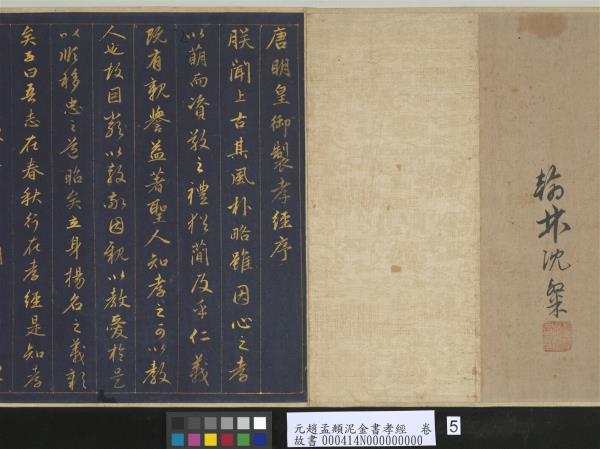 翰林沈粲
唐明皇御製孝經序
朕聞上古其風朴略雖因心之孝
以萌而資敬之禮猶簡及乎仁義
既有親譽益著聖人知孝之可以教
人也故因嚴以教敬因親以教愛於是
以順移忠之道昭矣立身揚名之義彰
矣子曰吾志在春秋行在孝經是知孝
元趙孟頫泥金書孝經 卷
故書 000414N000000000
5